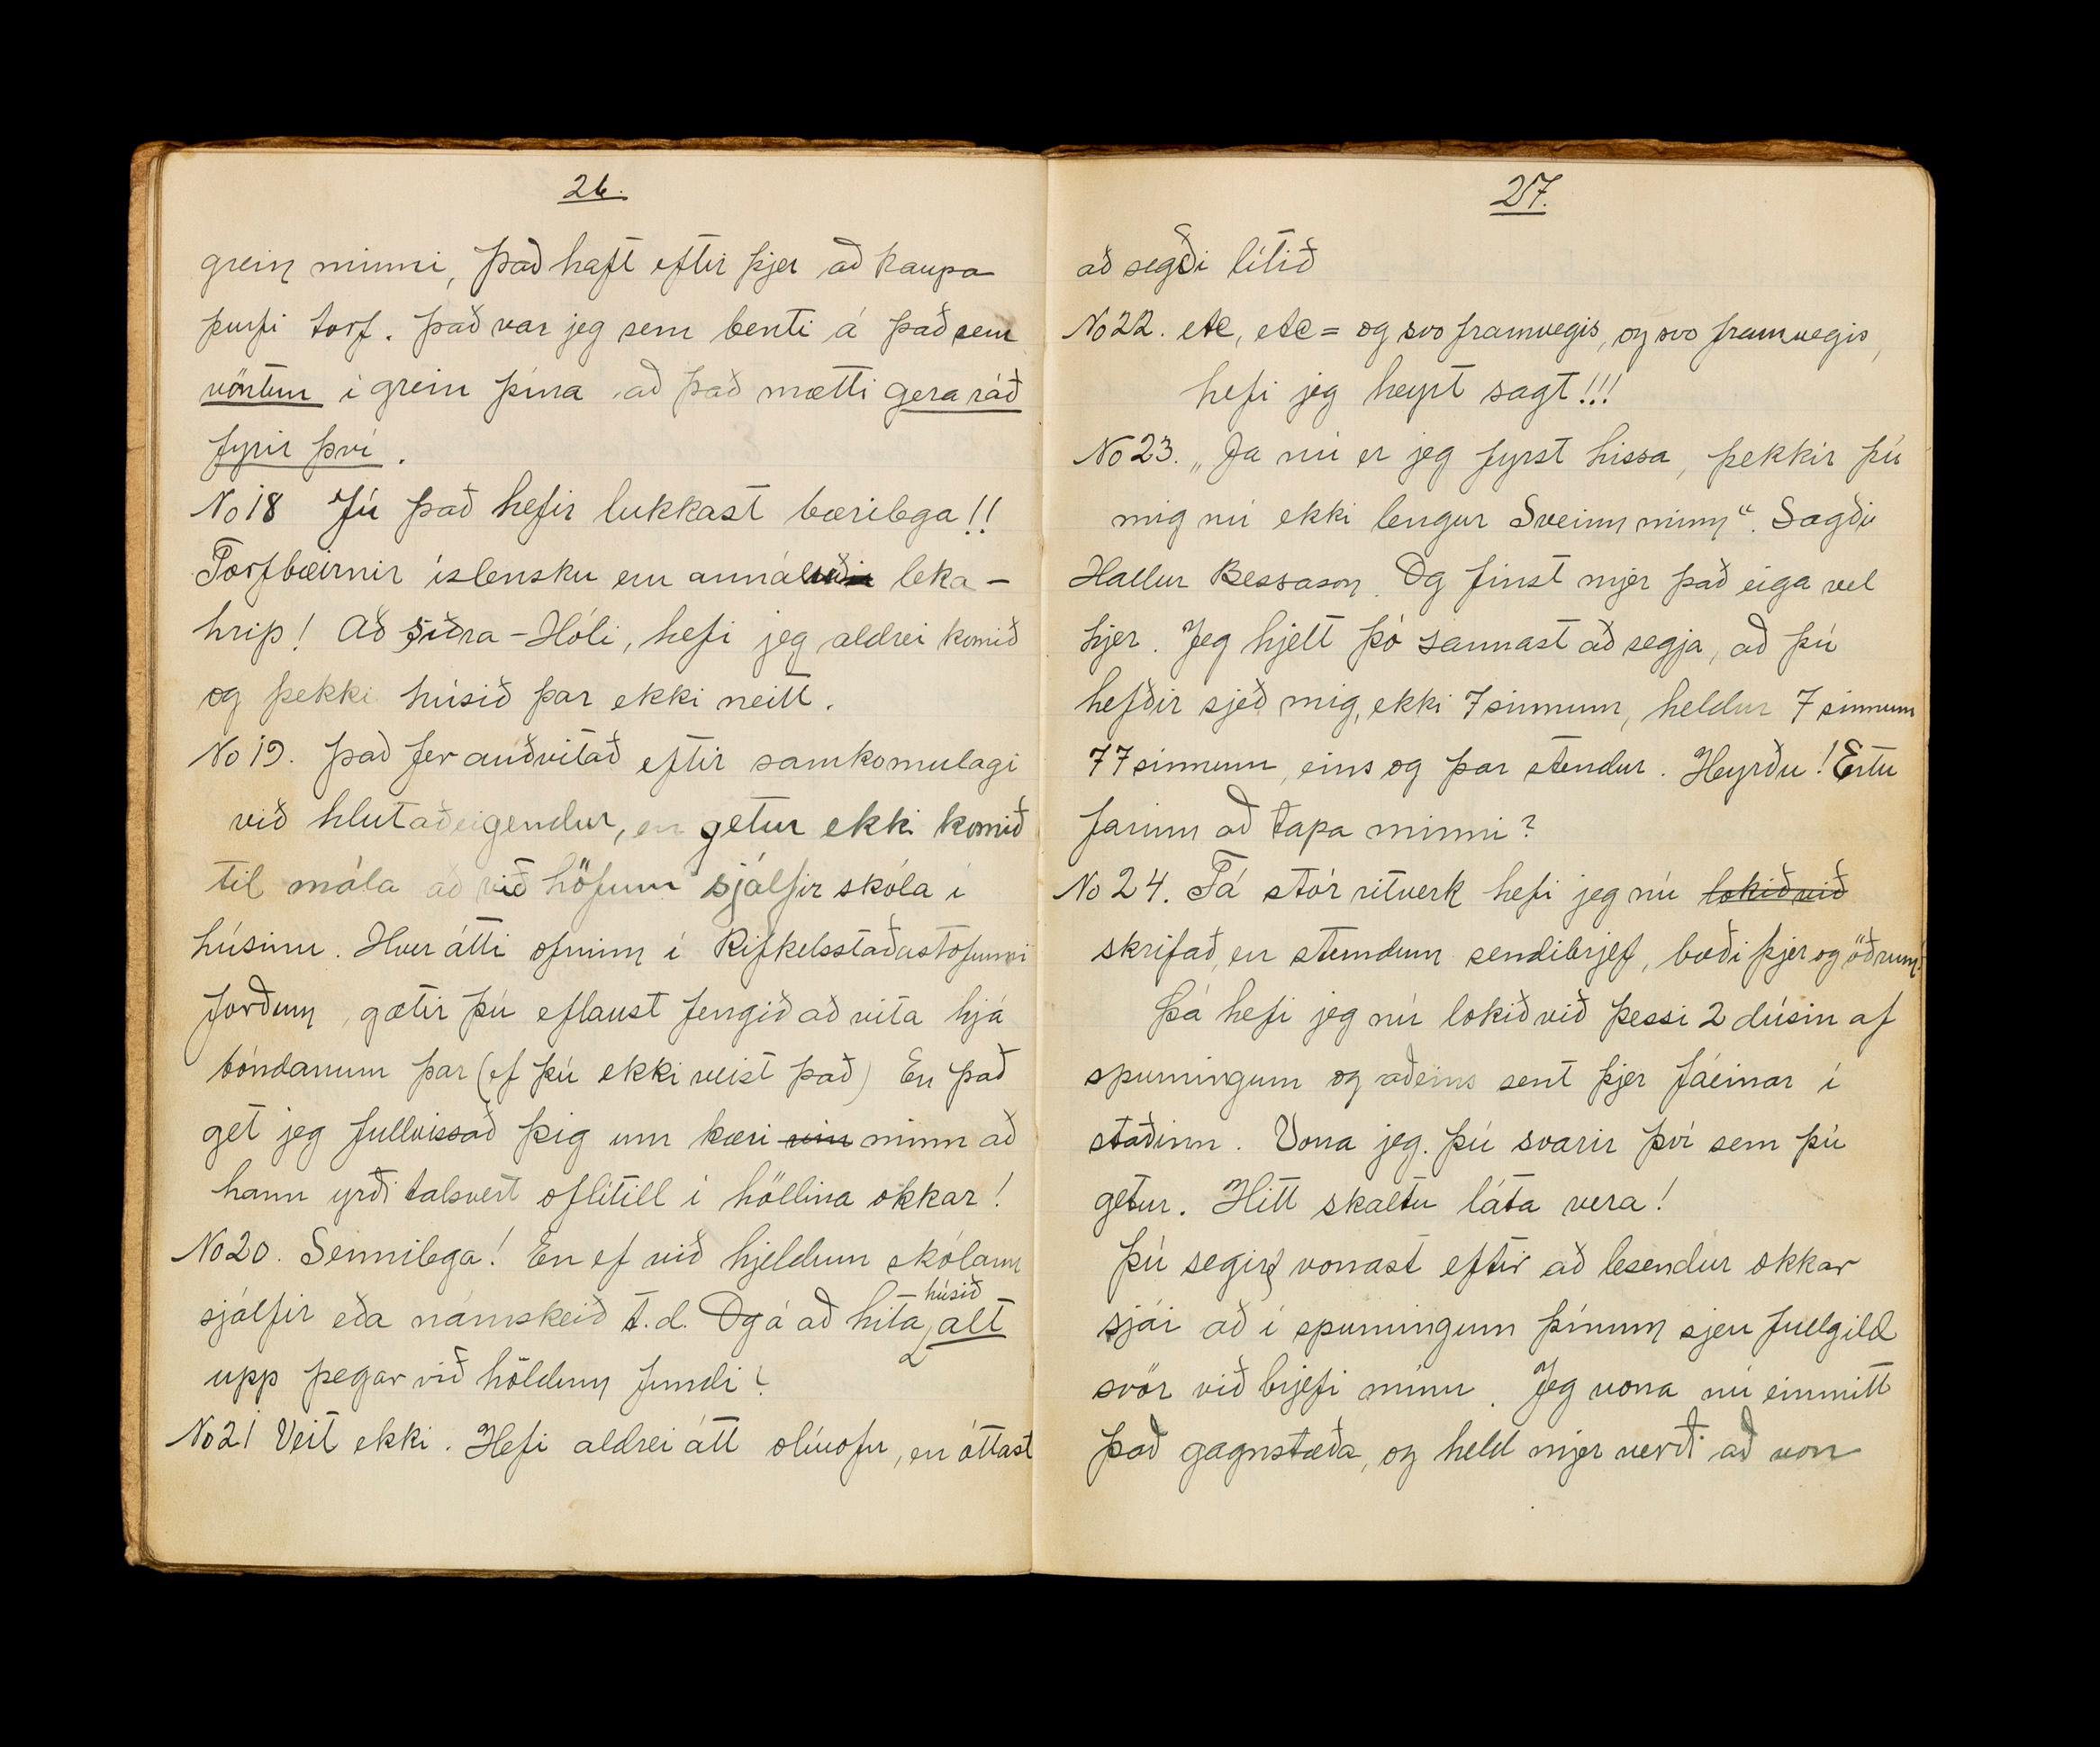 26.
grein minni, það haft eftir þjer að kaupa
þurfi torf. það var jeg sem benti á það sem
vöntun í grein þína að það mætti gera ráð
fyrir því.
No 18 Jú það hefir lukkast bærilega!!
Torfbæirnir íslensku eru annál leka-
hrip! Að Syðra-Hóli, hefi jeg aldrei komið
og þekki húsið þar ekki neitt.
No 19. það fer auðvitað eftir samkomulagi
við hlutaðeigendur, en getur ekki komið
til mála að við höfum sjálfir skóla í
húsinu. Hver átti ofninn í Rifkelsstaðastofunni
forðum, gætir þú eflaust fengið að vita hjá
bóndanum þar (ef þú ekki veist það) En það
get jeg fullvissað þig um kæri vin minn að
hann yrði talsvert oflítill í höllina okkar!
No 20. Sennilega! En ef við hjeldum skólann
sjálfir eða námskeið t.d. Og á að hita húsið alt
upp þegar við höldum fundi?
No 21 Veit ekki. Hefi aldrei átt olíuofn, en óttast
27.
að segði lítið
No 22. etc, etc = og svo framvegis, og svo framvegis,
hefi jeg heyrt sagt!!!
No 23. „Ja nú er jeg fyrst hissa, þekkir þú
mig nú ekki lengur Sveinn minn“. Sagði
Hallur Bessason. Og finst mjer það eiga vel
hjer. Jeg hjelt þó sannast að segja, að þú
hefðir sjeð mig, ekki 7 sinnum, heldur 7 sinnum
77 sinnum, eins og þar stendur. Heyrðu! Ertu
farinn að tapa minni?
No 24. Fá stór ritverk hefi jeg nú lokið við
skrifað, en stundum sendibrjef, bæði þjer og öðrum!
Þá hefi jeg nú lokið við þessi 2 dúsin af
spurningum og aðeins sent þjer fáeinar í
staðinn. Vona jeg. þú svarir því sem þú
getur. Hitt skaltu láta vera!
Þú segir vonast eftir að lesendur okkar
sjái að í spurningum þínum sjeu fullgild
svör við brjefi mínu. Jeg vona nú einmitt
það gagnstæða, og held mjer verði að von